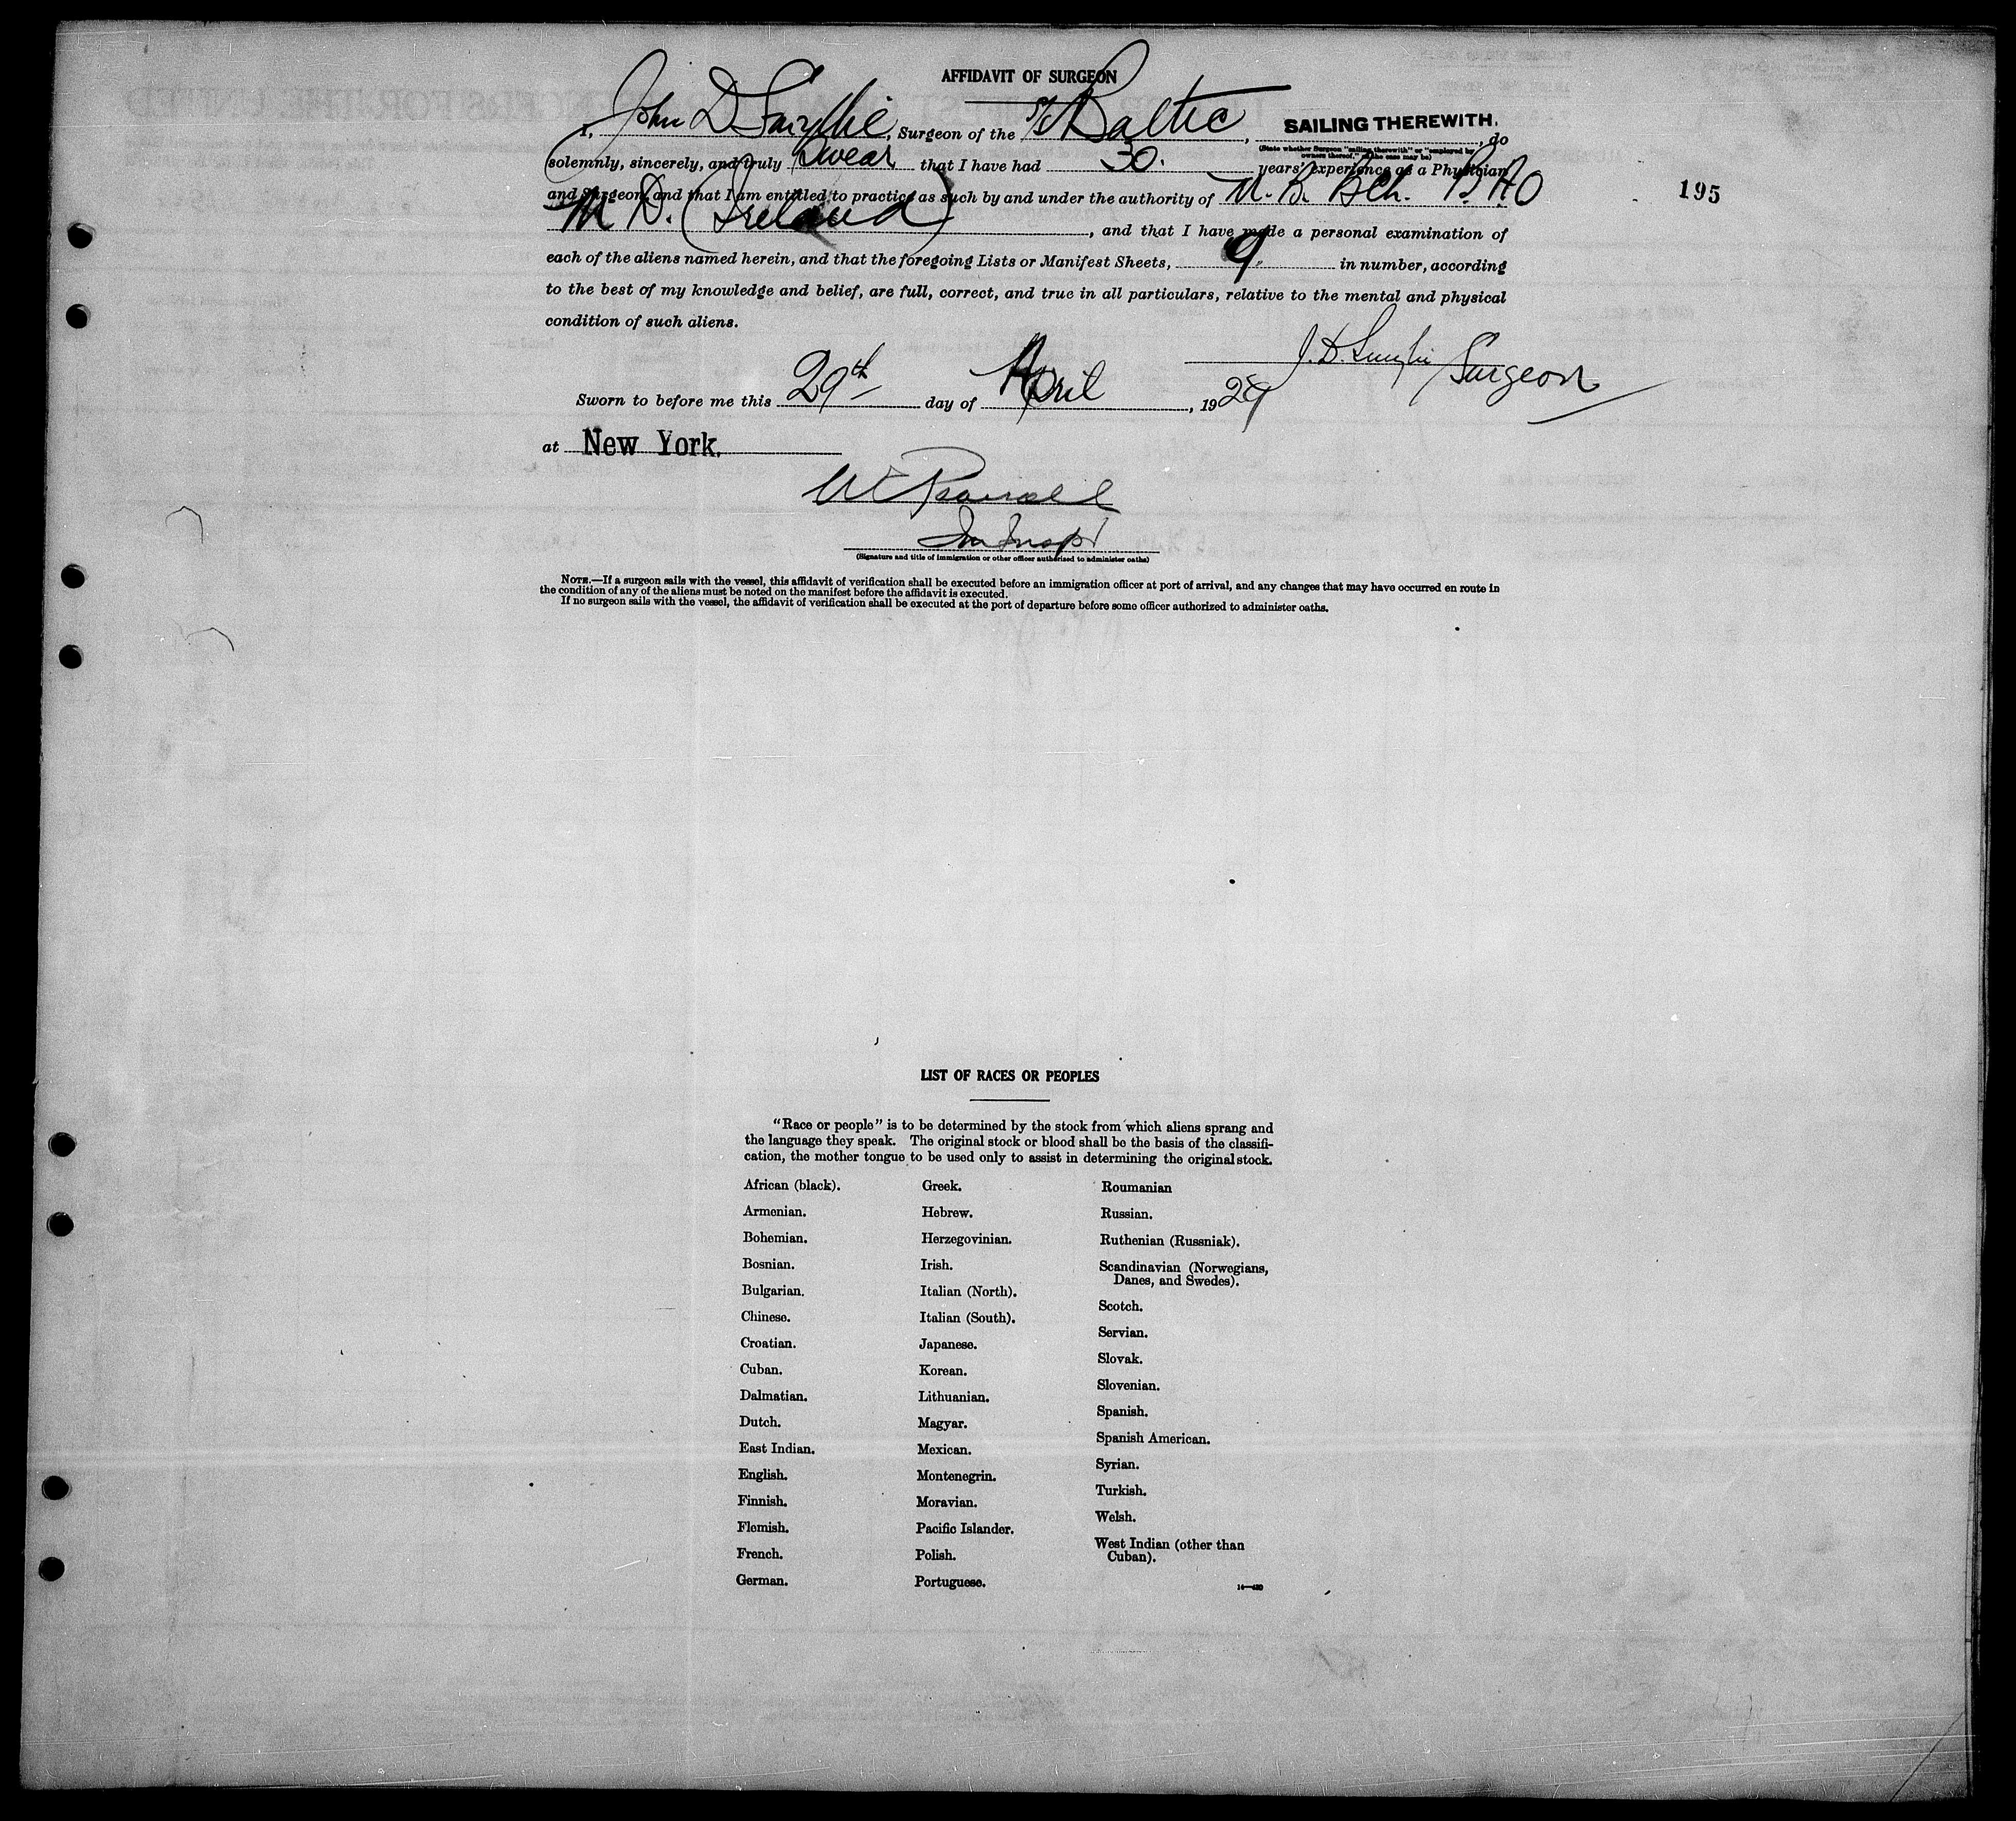 AFFIDAVIT OF SURGEON
I, John D , Surgeon of the S/S Baltic, SAILING THEREWITH., do
(State whether Surgeon "sailing therewith" or "employed by owners thereof," as the case may be)
solemnly, sincerely, and truly Swear that I have had 30. years' experience as a Physician
and Surgeon, and that I am entitled to practice as such by and under the authority of M. B. BCh. B.A.O
M D. (Ireland), and that I have made a personal examination of
each of the aliens named herein, and that the foregoing Lists or Manifest Sheets, 9 in number, according
to the best of my knowledge and belief, are full, correct, and true in all particulars, relative to the mental and physical
condition of such aliens.
J. D. Surgeon
Sworn to before me this 29th day of April, 1929
at New York.
Im Inspr
(Signature and title of immigration or other officer authorized to administer oaths)
NOTE.—If a surgeon sails with the vessel, this affidavit of verification shall be executed before an immigration officer at port of arrival, and any changes that may have occurred en route in
the condition of any of the aliens must be noted on the manifest before the affidavit is executed.
If no surgeon sails with the vessel, the affidavit of verification shall be executed at the port of departure before some officer authorized to administer oaths.
195
LIST OF RACES OR PEOPLES
"Race or people" is to be determined by the stock from which aliens sprang and
the language they speak. The original stock or blood shall be the basis of the classifi-
cation, the mother tongue to be used only to assist in determining the original stock.
African (black).
Armenian.
Bohemian.
Bosnian.
Bulgarian.
Chinese.
Croatian.
Cuban.
Dalmatian.
Dutch.
East Indian.
English.
Finnish.
Flemish.
French.
German.
Greek.
Hebrew.
Herzegovinian.
Irish.
Italian (North).
Italian (South).
Japanese.
Korean.
Lithuanian.
Magyar.
Mexican.
Montenegrin.
Moravian.
Pacific Islander.
Polish.
Portuguese.
Roumanian
Russian.
Ruthenian (Russniak).
Scandinavian (Norwegians,
Danes, and Swedes).
Scotch.
Servian.
Slovak.
Slovenian.
Spanish.
Spanish American.
Syrian.
Turkish.
Welsh.
West Indian (other than
Cuban).